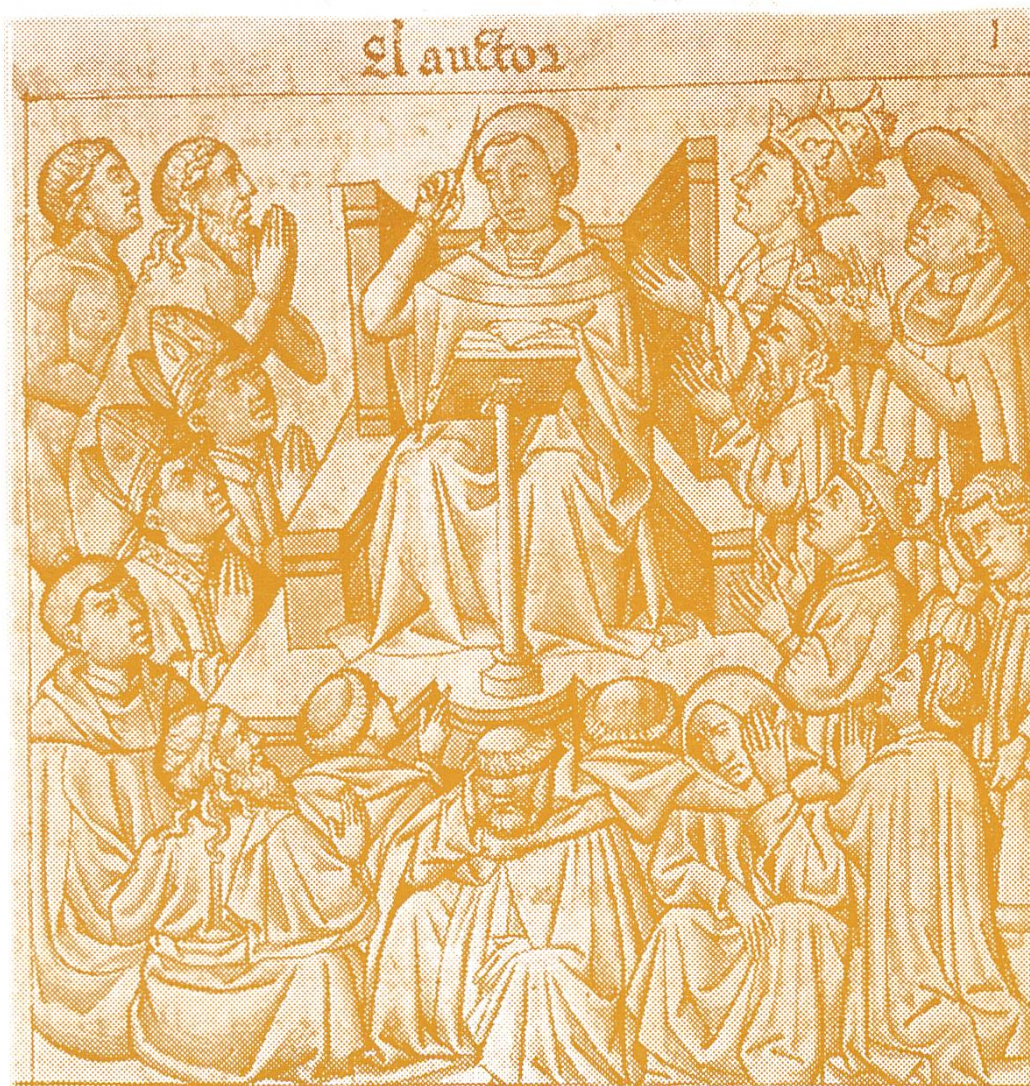 El auctor